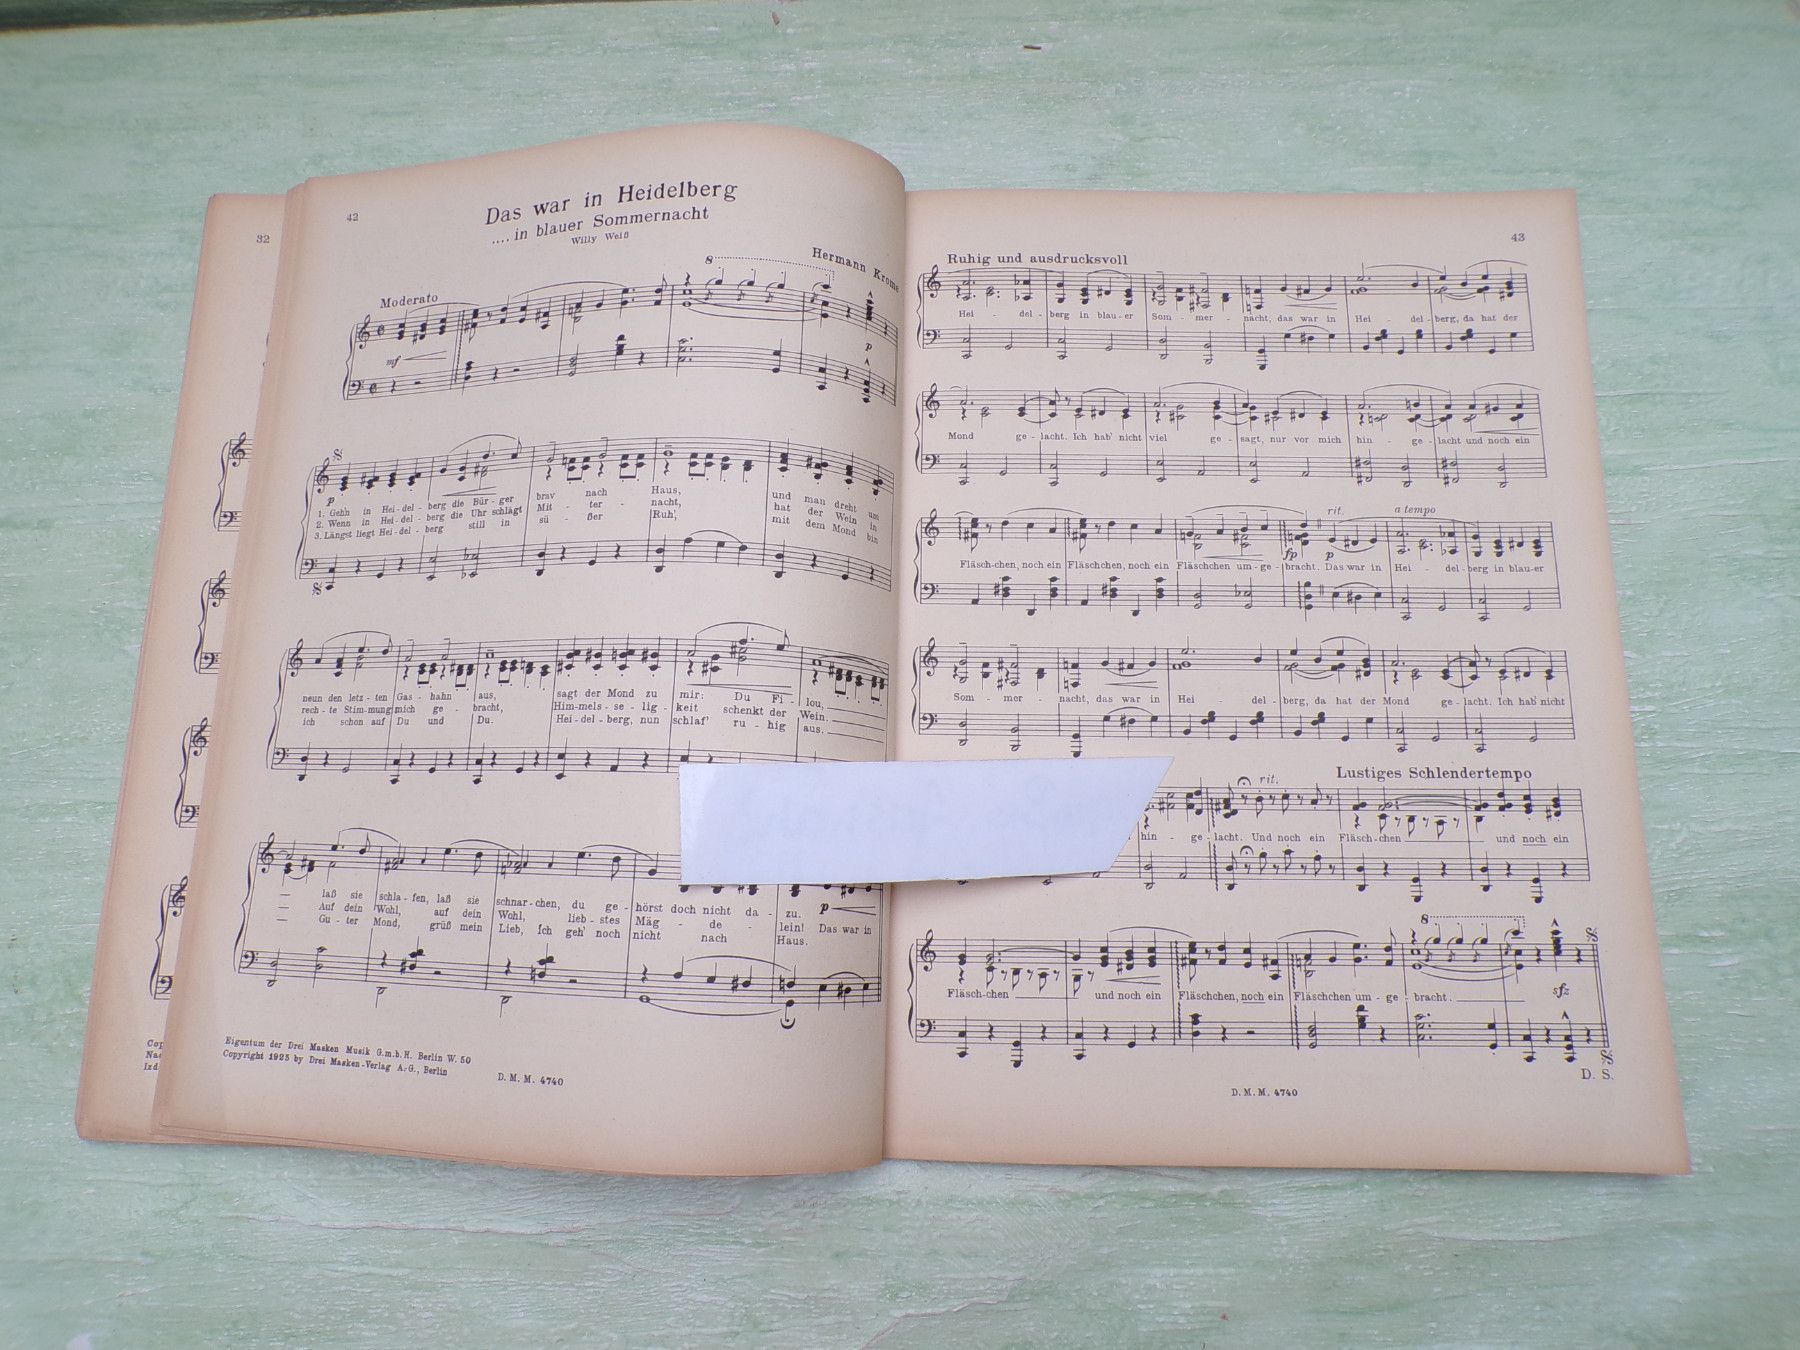 32
Cop
Na
Izd
42
Das war in Heidelberg
.... in blauer Sommernacht
Willy Weiß
Hermann Krome
Moderato
8
mf
p
p
1. Gehn in Hei-del-berg die Bür-ger brav nach Haus, und man dreht um
2. Wenn in Hei-del-berg die Uhr schlägt Mit-ter-nacht, hat der Wein in
3. Längst liegt Hei-del-berg still in sü-ßer Ruh', mit dem Mond bin
neun den letz-ten Gas-hahn aus, sagt der Mond zu mir: Du Fi-lou,
rech-te Stim-mung mich ge-bracht, Him-mels-se-lig-keit schenkt der Wein.
ich schon auf Du und Du. Hei-del-berg, nun schlaf' ru-hig aus.
p
laß sie schla-fen, laß sie schnar-chen, du ge-hörst doch nicht da-zu.
Auf dein Wohl, auf dein Wohl, lieb-stes Mäg-de-lein! Das war in
Gu-ter Mond, grüß mein Lieb, ich geh' noch nicht nach Haus.
Eigentum der Drei Masken Musik G.m.b.H. Berlin W. 50
Copyright 1925 by Drei Masken-Verlag A.-G., Berlin
D. M. M. 4740
43
Ruhig und ausdrucksvoll
Hei-del-berg in blau-er Som-mer-nacht, das war in Hei-del-berg, da hat der
Mond ge-lacht. Ich hab' nicht viel ge-sagt, nur vor mich hin-ge-lacht und noch ein
rit. a tempo
fp p
Fläsch-chen, noch ein Fläschchen, noch ein Fläschchen um-ge-bracht. Das war in Hei-del-berg in blau-er
Som-mer-nacht, das war in Hei-del-berg, da hat der Mond ge-lacht. Ich hab' nicht
rit. Lustiges Schlendertempo
hin-ge-lacht. Und noch ein Fläsch-chen und noch ein
8
Fläsch-chen und noch ein Fläschchen, noch ein Fläschchen um-ge-bracht.
sfz
D. S.
D. M. M. 4740